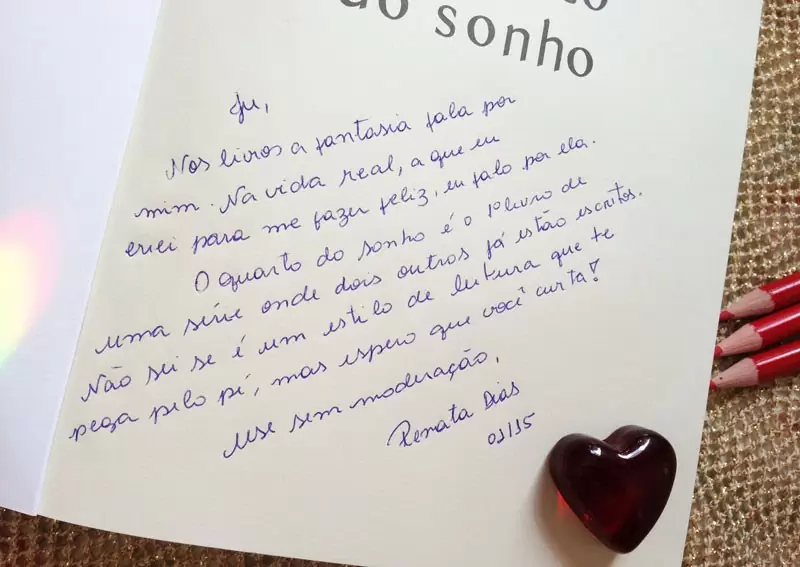 do sonho
Ju,
Nos livros a fantasia fala por
mim. Na vida real, a que eu
criei para me fazer feliz, eu falo por ela.
O quarto do sonho é o 1º livro de
uma série onde dois outros já estão escritos.
Não sei se é um estilo de leitura que te
pega pelo pé, mas espero que você curta!
Use sem moderação,
Renata Dias
01/15